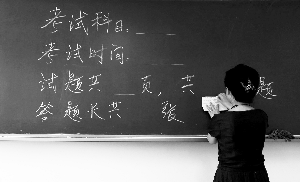 考试科目: _ _
考试时间: _ _
试题共 _ 页, 共 题
答题状共 张